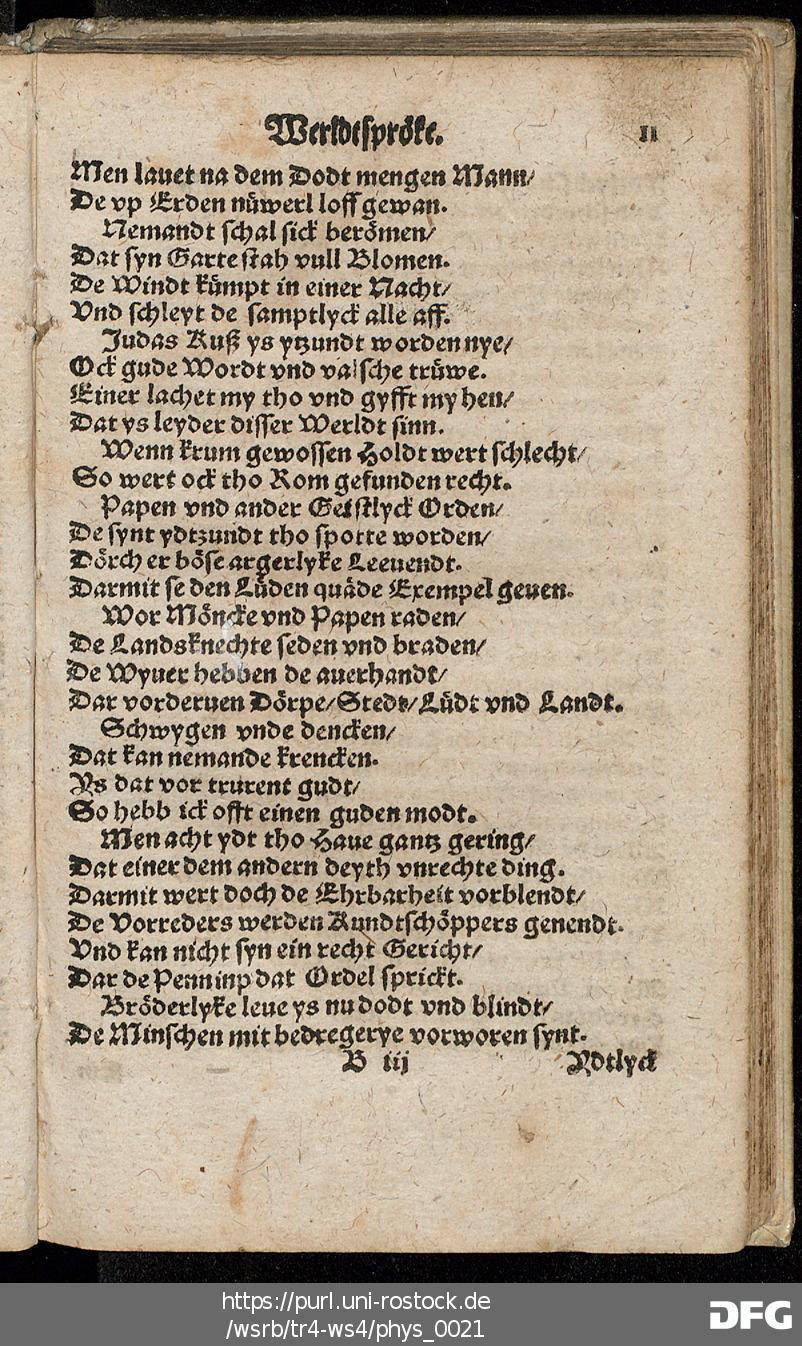 Werldtspröke. 11
Men lauet na dem Dodt mengen Mann/
De vp Erden nüwerl loff gewan.
Nemandt schal sick berömen/
Dat syn Garte stah vull Blomen.
De Windt kümpt in einer Nacht/
Vnd schleyt de samptlyck alle aff.
Judas Kuß ys ytzundt worden nye/
Ock gude Wordt vnd valsche trüwe.
Einer lachet my tho vnd gyfft my hen/
Dat ys leyder disser Werldt sinn.
Wenn krum gewossen Holdt wert schlecht/
So wert ock tho Rom gefunden recht.
Papen vnd ander Geistlyck Orden/
De synt ydtzundt tho spotte worden/
Dörch er böse argerlyke Leeuendt.
Darmit se den Lüden quäde Exempel geuen.
Wor Möncke vnd Papen raden/
De Landsknechte seden vnd braden/
De Wyuer hebben de auerhandt/
Dar vorderuen Dörpe/Stedt/Lüdt vnd Landt.
Schwygen vnde dencken/
Dat kan nemande krencken.
Ys dat vor trurent gudt/
So hebb ick offt einen guden modt.
Men acht ydt tho Haue gantz gering/
Dat einer dem andern deyth vnrechte ding.
Darmit wert doch de Ehrbarheit vorblendt/
De Vorreders werden Kundtschöppers genendt.
Vnd kan nicht syn ein recht Gericht/
Dar de Penninp dat Ordel sprickt.
Bröderlyke leue ys nu dodt vnd blindt/
De Minschen mit bedregerye vorworen synt.
B iij Ydtlyck
https://purl.uni-rostock.de
/wsrb/tr4-ws4/phys_0021
DFG